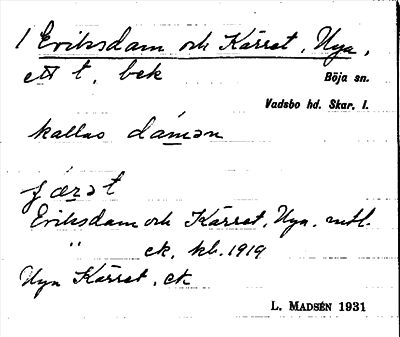 1 Eriksdam och Kärret, Nya,
ett t. bek
Böja sn.
Vadsbo hd. Skar. l.
kallas dámən
ɟærət
Eriksdam och Kärret, Nya. mtl.
" ek. kb. 1919
Nya Kärret. ek
L. MADSÉN 1931